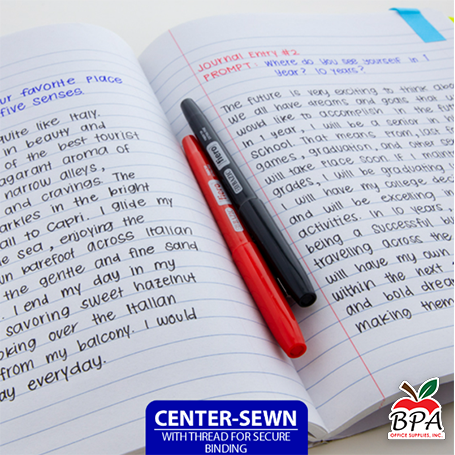 ur favorite place
five senses.
quite like Italy.
in beauty and
of the best tourist
fragarant aroma of
narrow alleys,
and cravings. The
arkles in the bright
ail to Capri. I glide my
e sea, enjoying the
wn barefoot across Italian
the gentle and fine sand
. I end my day in my
savoring sweet hazelnut
oking over the Italian
from my balcony. I would
ay everyday.
Journal Entry #2
PROMPT: Where do you see yourself in 1
year? 10 years?
The future is very exciting to think about
We all have dreams and goals that
would like to accomplish in the futu
In 1 year, I will be a senior in
school. That means prom, last f
games, graduation, and other sa
will take place soon. If I maintain
grades, I will be graduating
I will have my college deci
and will be excelling
activities. In 10 years
being a successful bu
traveling across the
will have my own
within the next
and bold dream
making them
CENTER-SEWN
WITH THREAD FOR SECURE
BINDING
BPA
OFFICE SUPPLIES, INC.